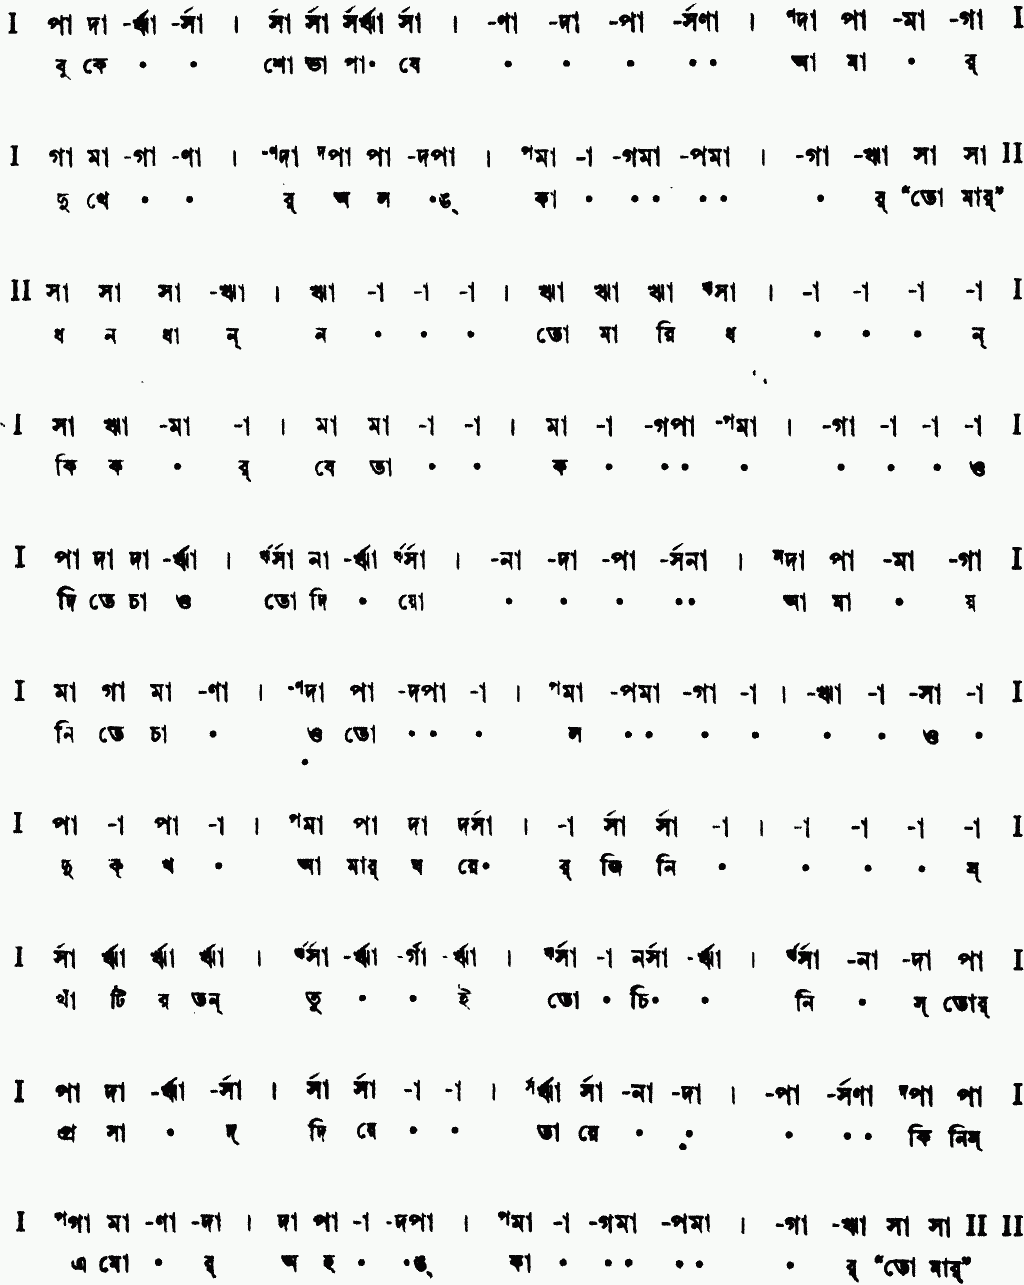 I পা দা -র্ঋা -র্সা । র্সা র্সা র্সর্ঋা র্সা । -ণা -দা -পা -র্সণা । ণদা পা -মা -গা I
বু কে • • শো ভা পা• বে • • • • • আ মা • র্
I গা মা -গা -ণা । -ণদা দপা পা -দপা । পমা -া -গমা -পমা । -গা -ঋা সা সা II
দু খে • • র্ অ ল •ঙ্ কা • • • • • • র্ “তো মার্”
II সা সা সা -ঋা । ঋা -া -া -া । ঋা ঋা ঋা ঋসা । -া -া -া -া I
ধ ন ধা ন্ ন • • • তো মা রি ধ • • • ন্
I সা ঋা -মা -া । মা মা -া -া । মা -া -গপা -পমা । -গা -া -া -া I
কি ক • র্ বে তা • • ক • • • • • • • ও
I পা দা দা -র্ঋা । র্ঋর্সা না -র্ঋা র্ঋর্সা । -না -দা -পা -র্সনা । নদা পা -মা -গা I
দি তে চা ও তো দি • য়ো • • • • • আ মা • য়
I মা গা মা -ণা । -ণদা পা -দপা -া । পমা -পমা -গা -া । -ঋা -া -সা -া I
নি তে চা • ও তো • • • ল • • • • • • ও •
I পা -া পা -া । পমা পা দা দর্সা । -া র্সা র্সা -া । -া -া -া -া I
দু ক্ খ • আ মার্ ঘ রে• র্ জি নি • • • • স্
I র্সা র্ঋা র্ঋা র্ঋা । র্ঋর্সা -র্ঋা -র্গা -র্ঋা । র্ঋর্সা -া নর্সা -র্ঋা । র্ঋর্সা -না -দা পা I
খাঁ টি র তন্ তু • • ই তো • চি• • নি • স্ তোর্
I পা দা -র্ঋা -র্সা । র্সা র্সা -া -া । র্সর্ঋা র্সা -না -দা । -পা -র্সণা দপা পা I
প্র সা • দ্ দি য়ে • • তা রে • • • • • কি নিস্
I পগা মা -ণা -দা । দা পা -া -দপা । পমা -া -গমা -পমা । -গা -ঋা সা সা II II
এ মো • র্ অ হ • •ঙ্ কা • • • • • • র্ “তো মার্”